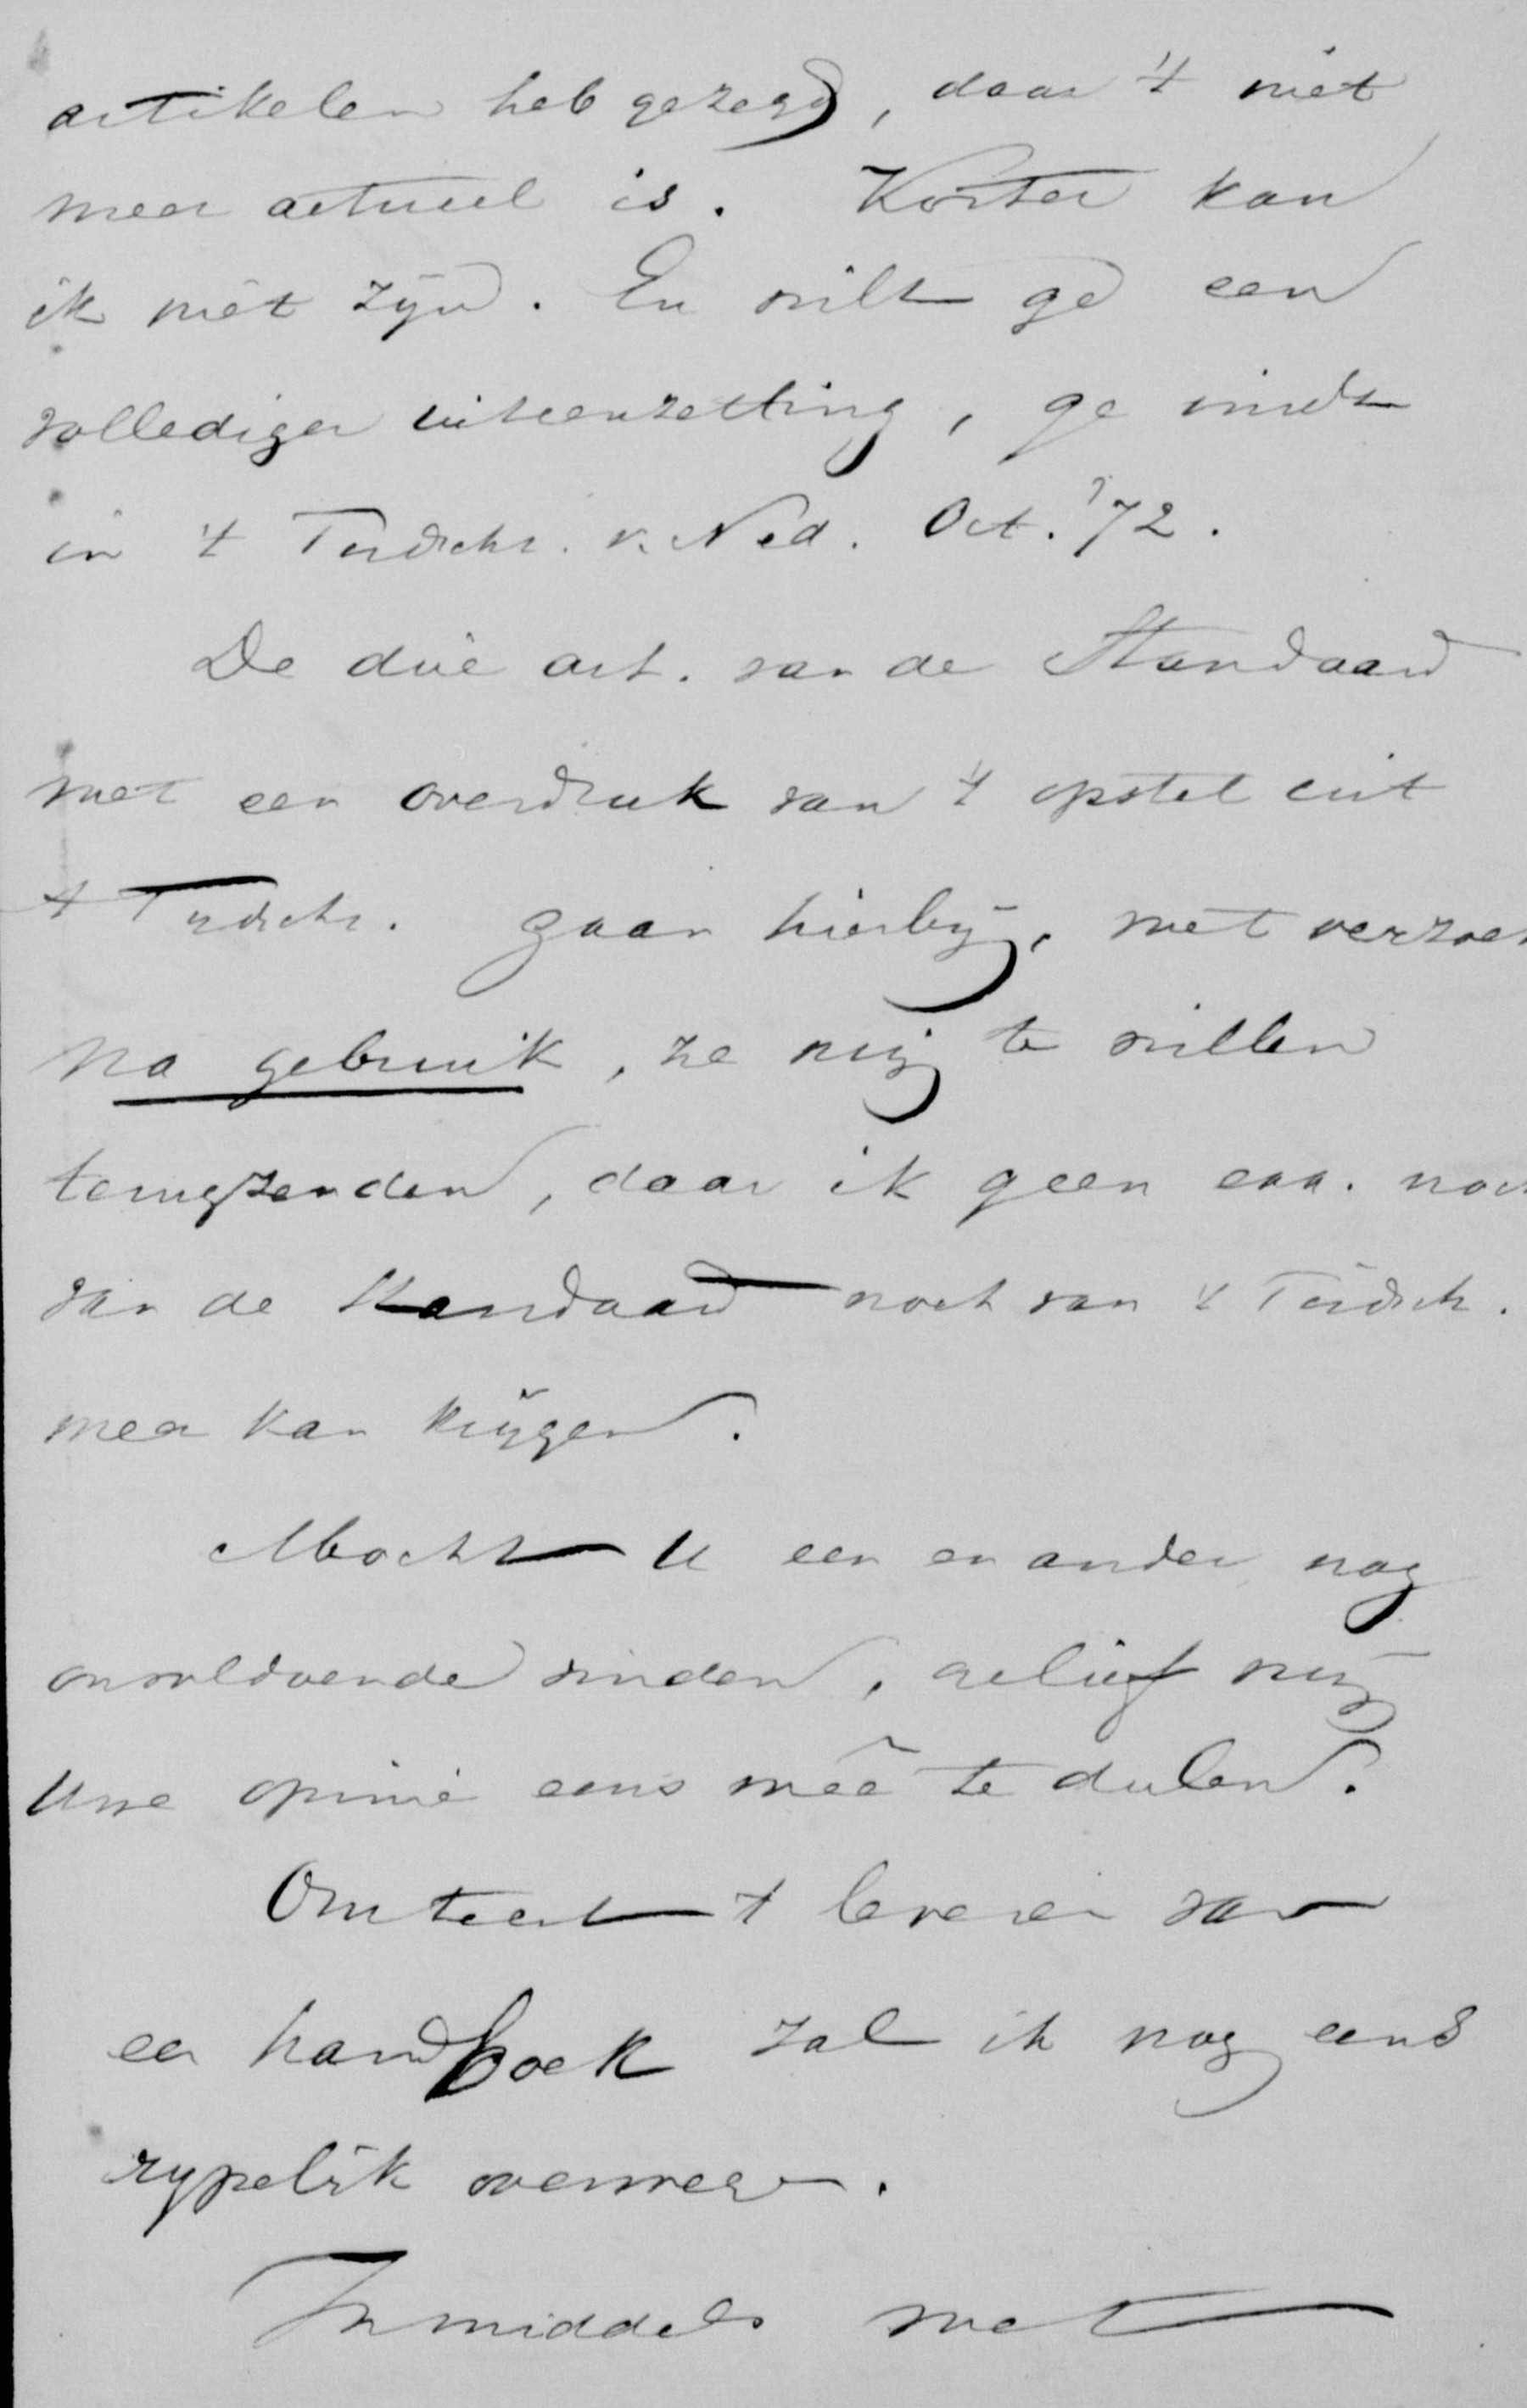 artikelen heb gezegd, daar 't niet
meer actueel is. Korter kan
ik niet zijn. En wilt ge een
vollediger uiteenzetting, ge vindt
in 't Tijdschr. v. Ned. Oct. '72.
De drie art. van de Standaard
met een overdruk van 't opstel uit
't Tijdschr. gaan hierbij, met verzoek
na gebruik, ze mij te willen
terugzenden, daar ik geen exx. noch
van de Standaard noch van 't Tijdsch.
meer kan krijgen.
Mocht U een en ander nog
onvoldoende vinden, gelief mij
Uwe opinie eens meê te deelen.
Omtrent 't leveren van
een handboek zal ik nog eens
rypelijk overwegen.
Inmiddels met